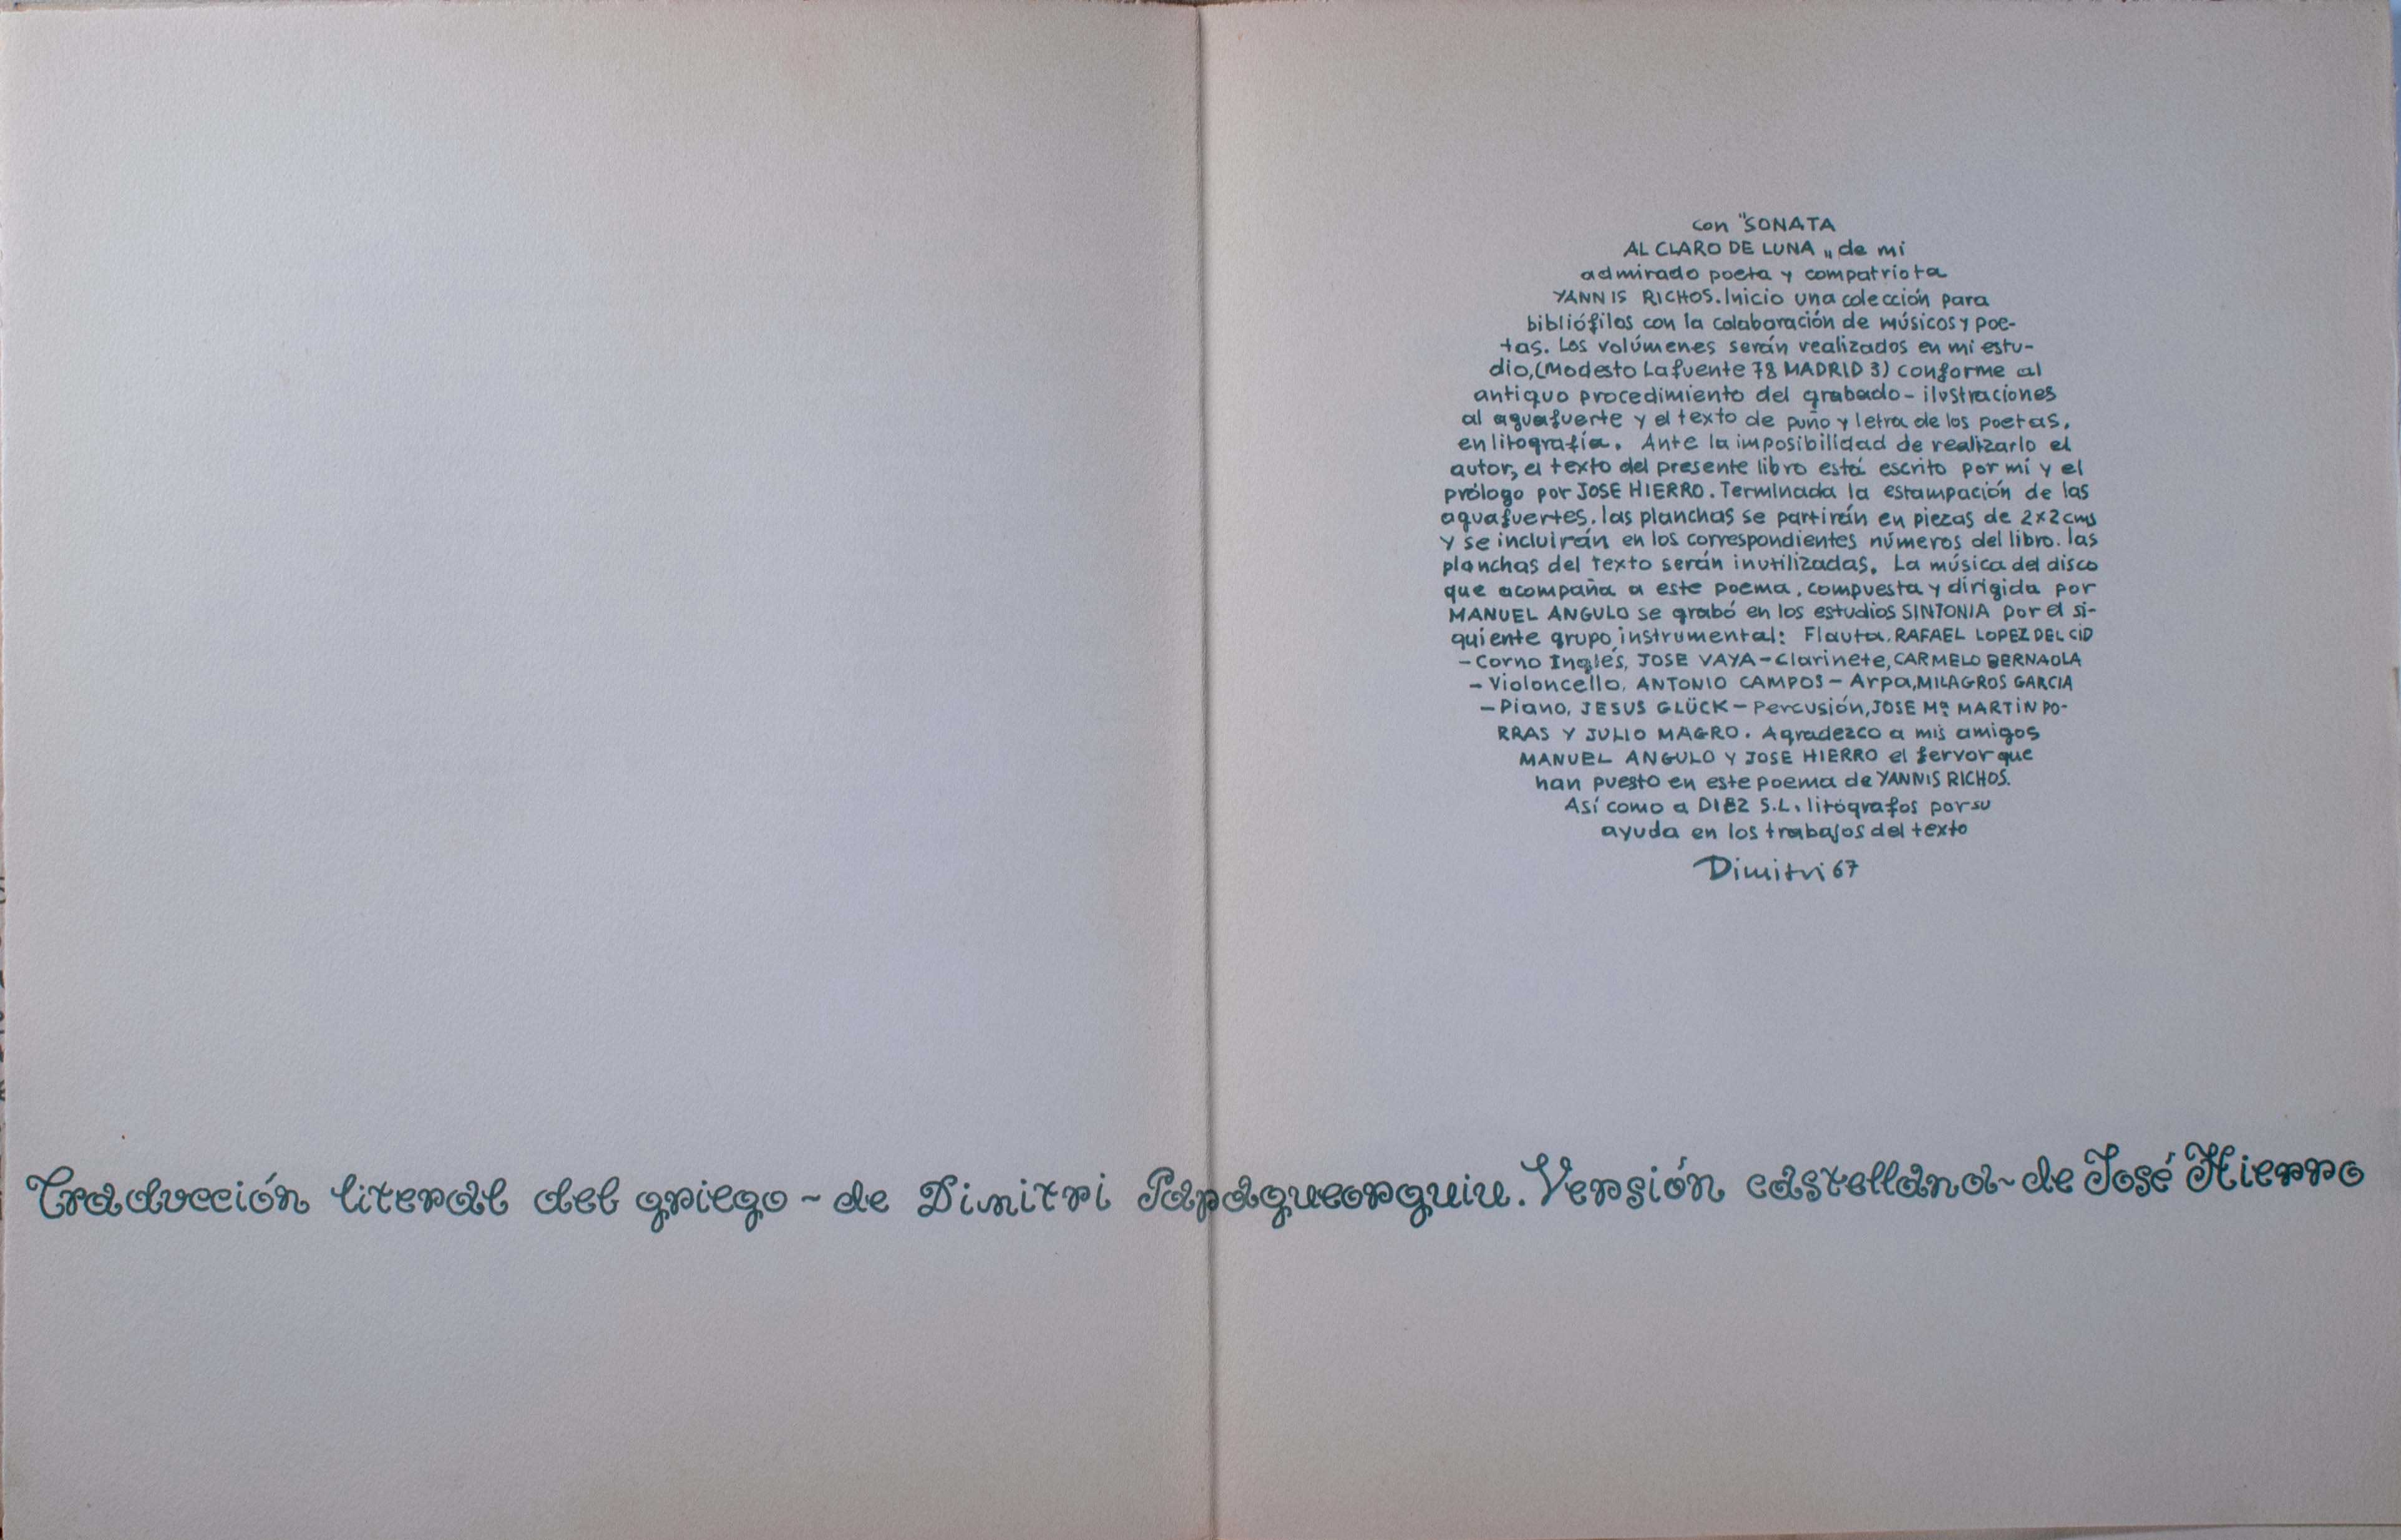 con "SONATA
AL CLARO DE LUNA „ de mi
admirado poeta y compatriota
YANNIS RICHOS. Inicio una colección para
bibliófilos con la colaboración de músicos y poe-
tas. Los volúmenes serán realizados en mi estu-
dio, (Modesto Lafuente 78 MADRID 3) conforme al
antiguo procedimiento del grabado - ilustraciones
al aguafuerte y el texto de puño y letra de los poetas,
en litografía. Ante la imposibilidad de realizarlo el
autor, el texto del presente libro está escrito por mí y el
prólogo por JOSE HIERRO. Terminada la estampación de las
aguafuertes, las planchas se partirán en piezas de 2x2 cms
y se incluirán en los correspondientes números del libro. las
planchas del texto serán inutilizadas. La música del disco
que acompaña a este poema, compuesta y dirigida por
MANUEL ANGULO se grabó en los estudios SINTONIA por el si-
guiente grupo instrumental: Flauta, RAFAEL LOPEZ DEL CID
- Corno Inglés, JOSE VAYA - Clarinete, CARMELO BERNAOLA
- Violoncello, ANTONIO CAMPOS - Arpa, MILAGROS GARCIA
- Piano, JESUS GLÜCK - Percusión, JOSE Mª MARTIN PO-
RRAS Y JULIO MAGRO. Agradezco a mis amigos
MANUEL ANGULO Y JOSE HIERRO el fervor que
han puesto en este poema de YANNIS RICHOS.
Así como a DIEZ S.L. litógrafos por su
ayuda en los trabajos del texto
Dimitri 67
Traducción literal del griego ~ de Dimitri Papagueorguiu. Versión castellana ~ de José Hierro